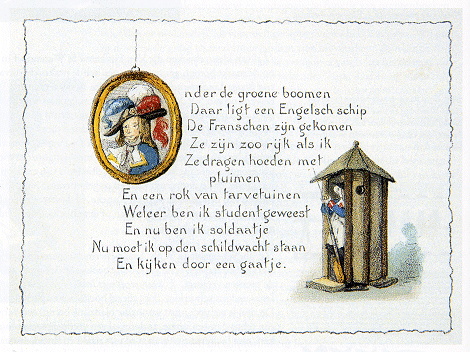 Onder de groene boomen
Daar ligt een Engelsch schip
De Franschen zijn gekomen
Ze zijn zoo rijk als ik
Ze dragen hoeden met
pluimen
En een rok van tarvetuinen
Weleer ben ik student geweest
En nu ben ik soldaatje
Nu moet ik op den schildwacht staan
En kijken door een gaatje.